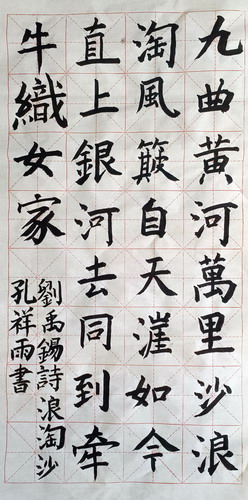 九曲黄河萬里沙浪
淘風簸自天漄如今
直上銀河去同到牵
牛織女家
劉禹錫詩浪淘沙
孔祥雨書